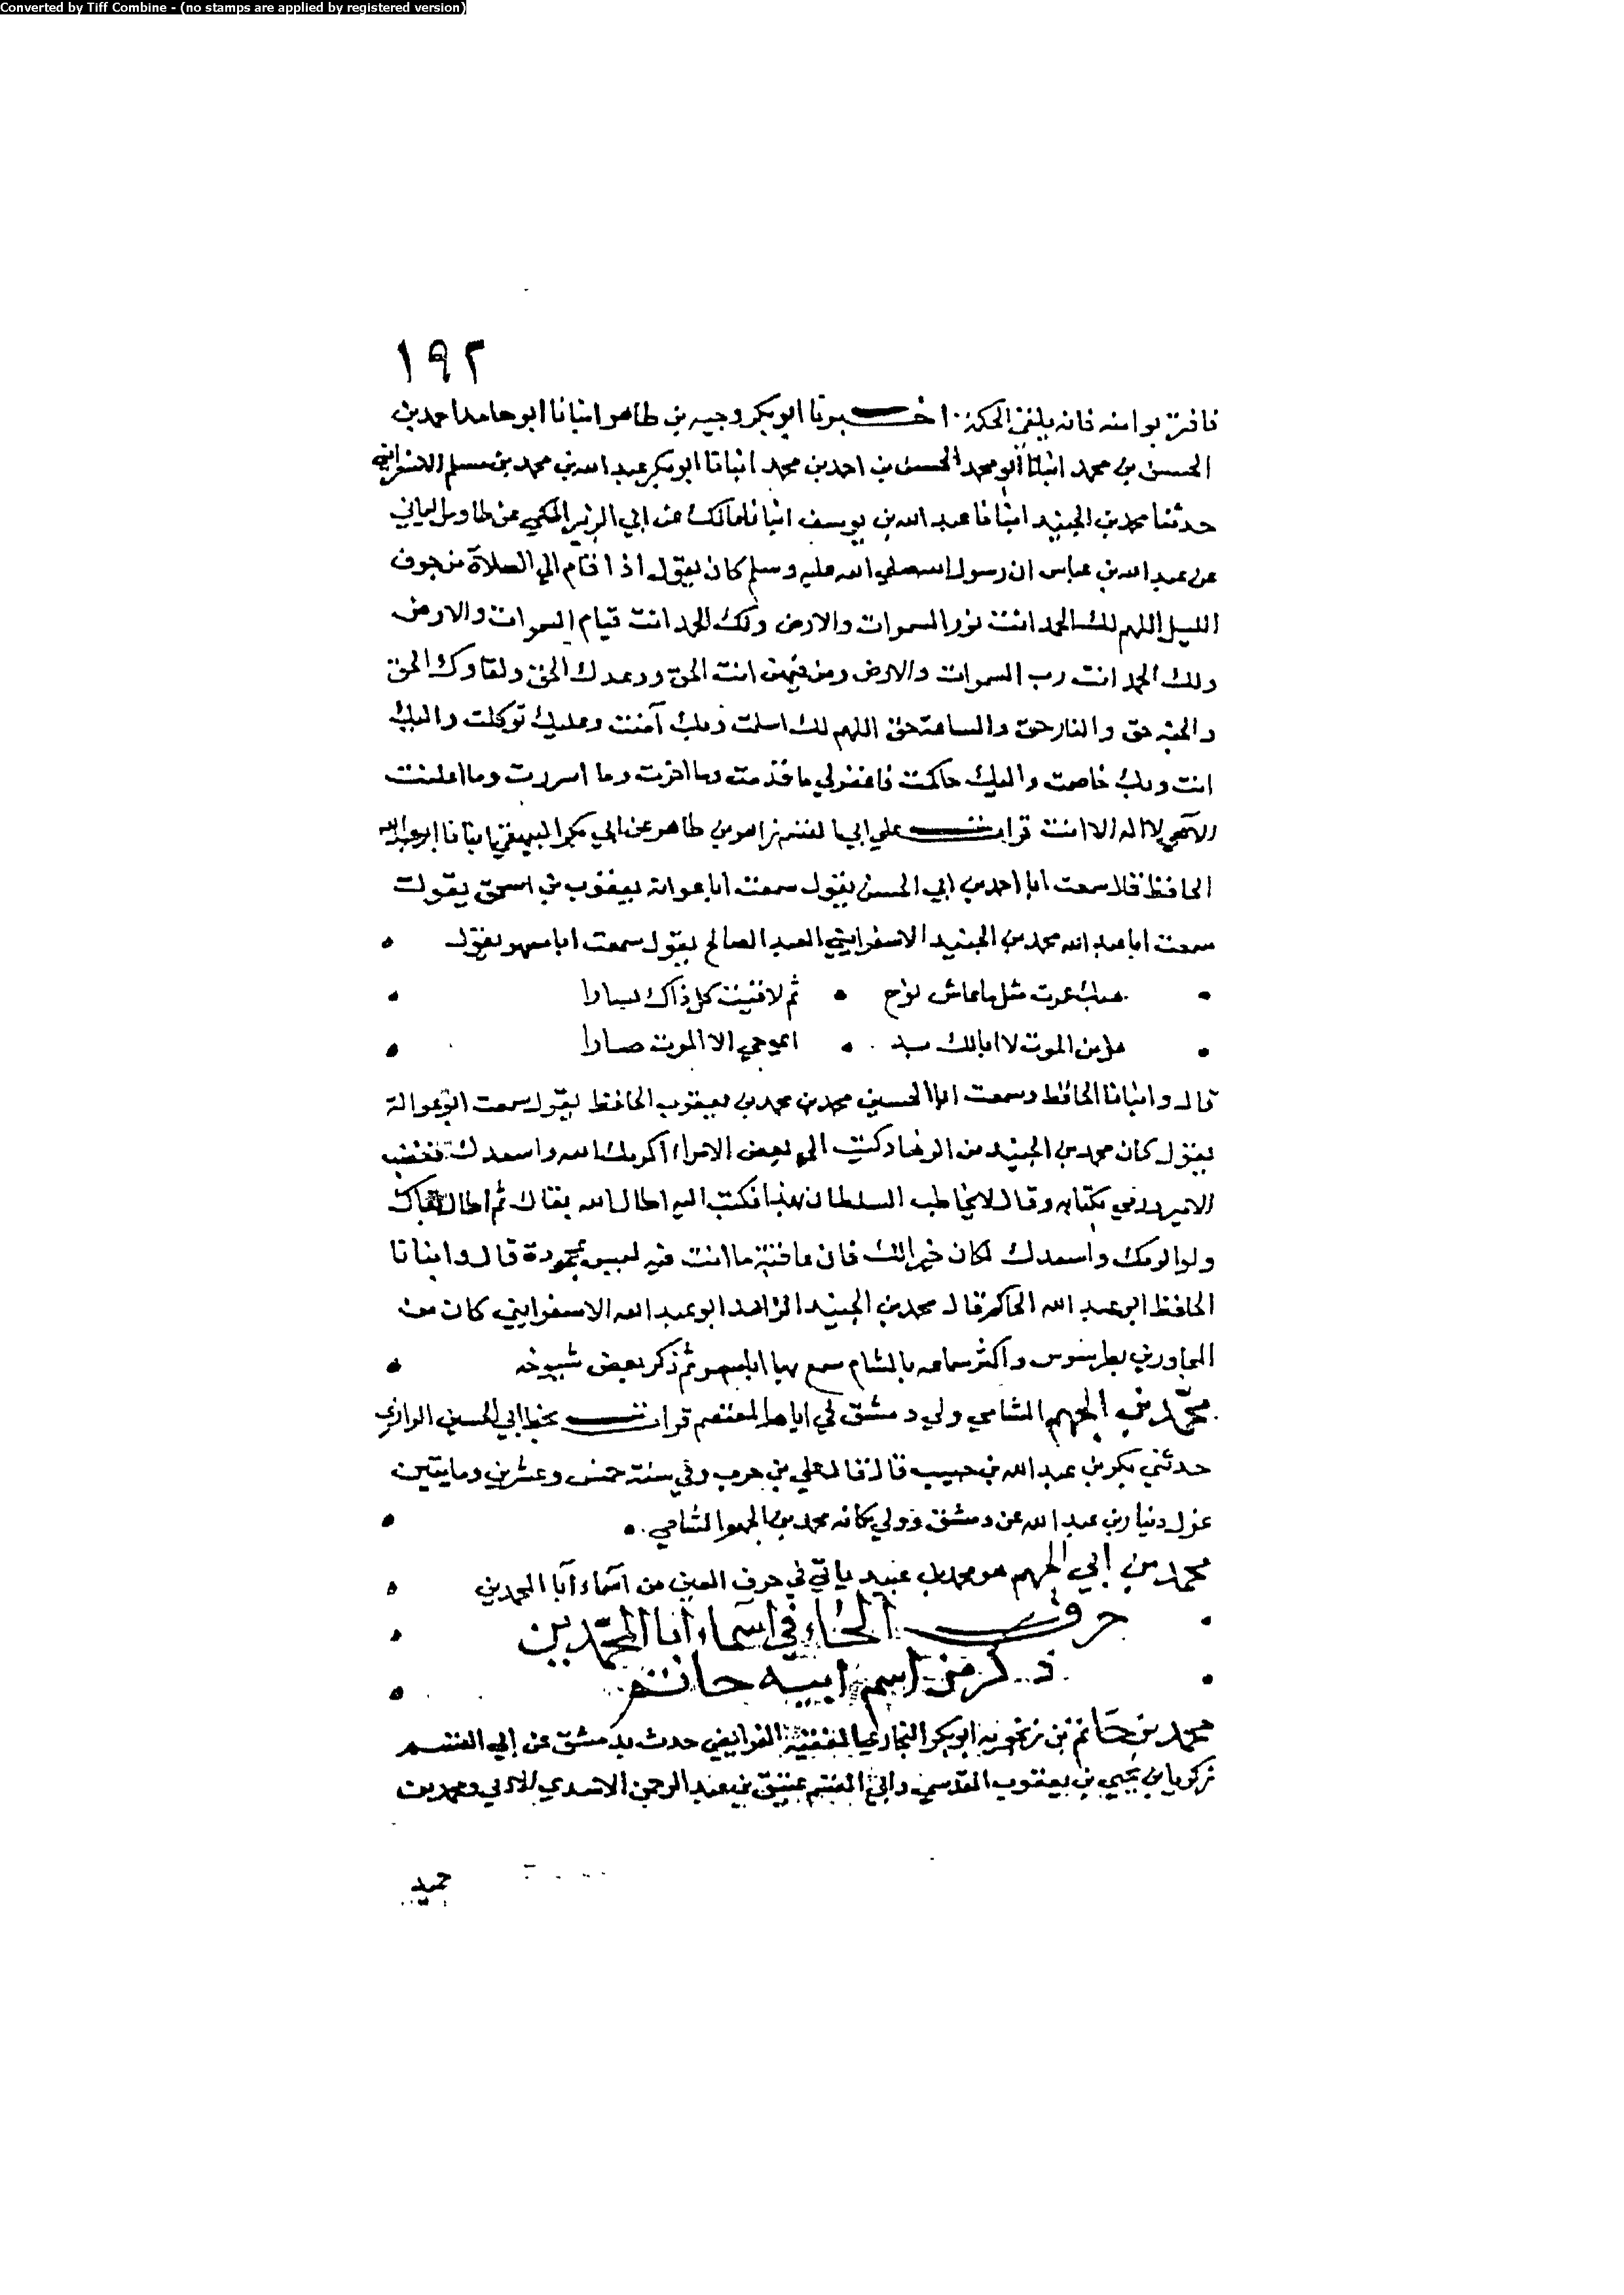 Converted by Tiff Combine - (no stamps are applied by registered version)
١٩٢
فاقتربوا منه فانه يلقى الحكمة اخبرنا ابو بكر وجيه بن طاهر انبانا ابو حامد احمد بن
الحسن بن محمد انبانا ابو محمد الحسن بن احمد بن محمد انبانا ابو بكر عبد الله بن محمد بن مسلم الاسفرايني
حدثنا محمد بن الجنيد انبانا عبد الله بن يوسف انبانا مالك عن ابي الزبير المكي عن طاوس اليماني
عن عبد الله بن عباس ان رسول الله صلى الله عليه وسلم كان يقول اذا قام الي الصلاة من جوف
الليل اللهم لك الحمد انت نور السموات والارض ولك الحمد انت قيام السموات والارض
ولك الحمد انت رب السموات والارض ومن فيهن انت الحق ووعدك الحق ولقاوك الحق
والجنة حق والنار حق والساعة حق اللهم لك اسلمت وبك آمنت وعليك توكلت واليك
انت وبك خاصمت واليك حاكمت فاغفر لي ما قدمت وما اخرت وما اسررت وما اعلنت
الاهي لا اله الا انت قرات علي ابي القسم زاهر بن طاهر عن ابي بكر البيهقي انبانا ابو عبد الله
الحافظ قال سمعت ابا احمد بن ابي الحسن يقول سمعت ابا عوانة يعقوب بن اسحق يقول
سمعت ابا عبد الله محمد بن الجنيد الاسفرايني العبد الصالح يقول سمعت ابا مسهر يقول
هبك عمرت مثل ما عاش نوح ثم لاقيت كل ذاك يسارا
هل من الموت لا ابا لك بد اي حي الا الموت صارا
قال وانبانا الحافظ وسمعت ابا الحسين محمد بن محمد بن يعقوب الحافظ يقول سمعت ابو عوانة
يقول كان محمد بن الجنيد من الزهاد كتب الي بعض الامراء اكرمك الله واسعدك فغضب
الامير ورمي بكتابه وقال لا يخاطب السلطان بهذا فكتب اليه اطال الله بقاك ثم اطال بقاك
ولو اكرمك واسعدك لكان خيرا لك فان عاقبة ما انت فيه ليس بمحمودة قال وانبانا
الحافظ ابو عبد الله الحاكم قال محمد بن الجنيد الزاهد ابو عبد الله الاسفرايني كان من
المجاورين بطرسوس واكثر سماعه بالشام سمع بها ابا مسهر ثم ذكر بعض شيوخه
محمد بن الجهم الشامي ولي دمشق في ايام المعتصم قرات بخط ابي الحسين الرازي
حدثني بكر بن عبد الله بن حبيب قال قال علي بن حرب وفي سنة خمس وعشرين ومايتين
عزل دينار بن عبد الله عن دمشق وولي مكانه محمد بن الجهم الشامي
محمد بن ابي الجهم هو محمد بن عبيد ياتي في حرف العين من اسماء آبا المحمدين
حرف الحاء في اسماء ابا المحمدين
ذكر من اسم ابيه حاتم
محمد بن حاتم بن زنجويه ابو بكر البخاري الفقيه الفرايضي حدث بدمشق عن ابي القسم
زكريا بن يحيي بن يعقوب المقدسي وابي القسم عتيق بن عبد الرحمن الاسدي ومحمد بن
حميد